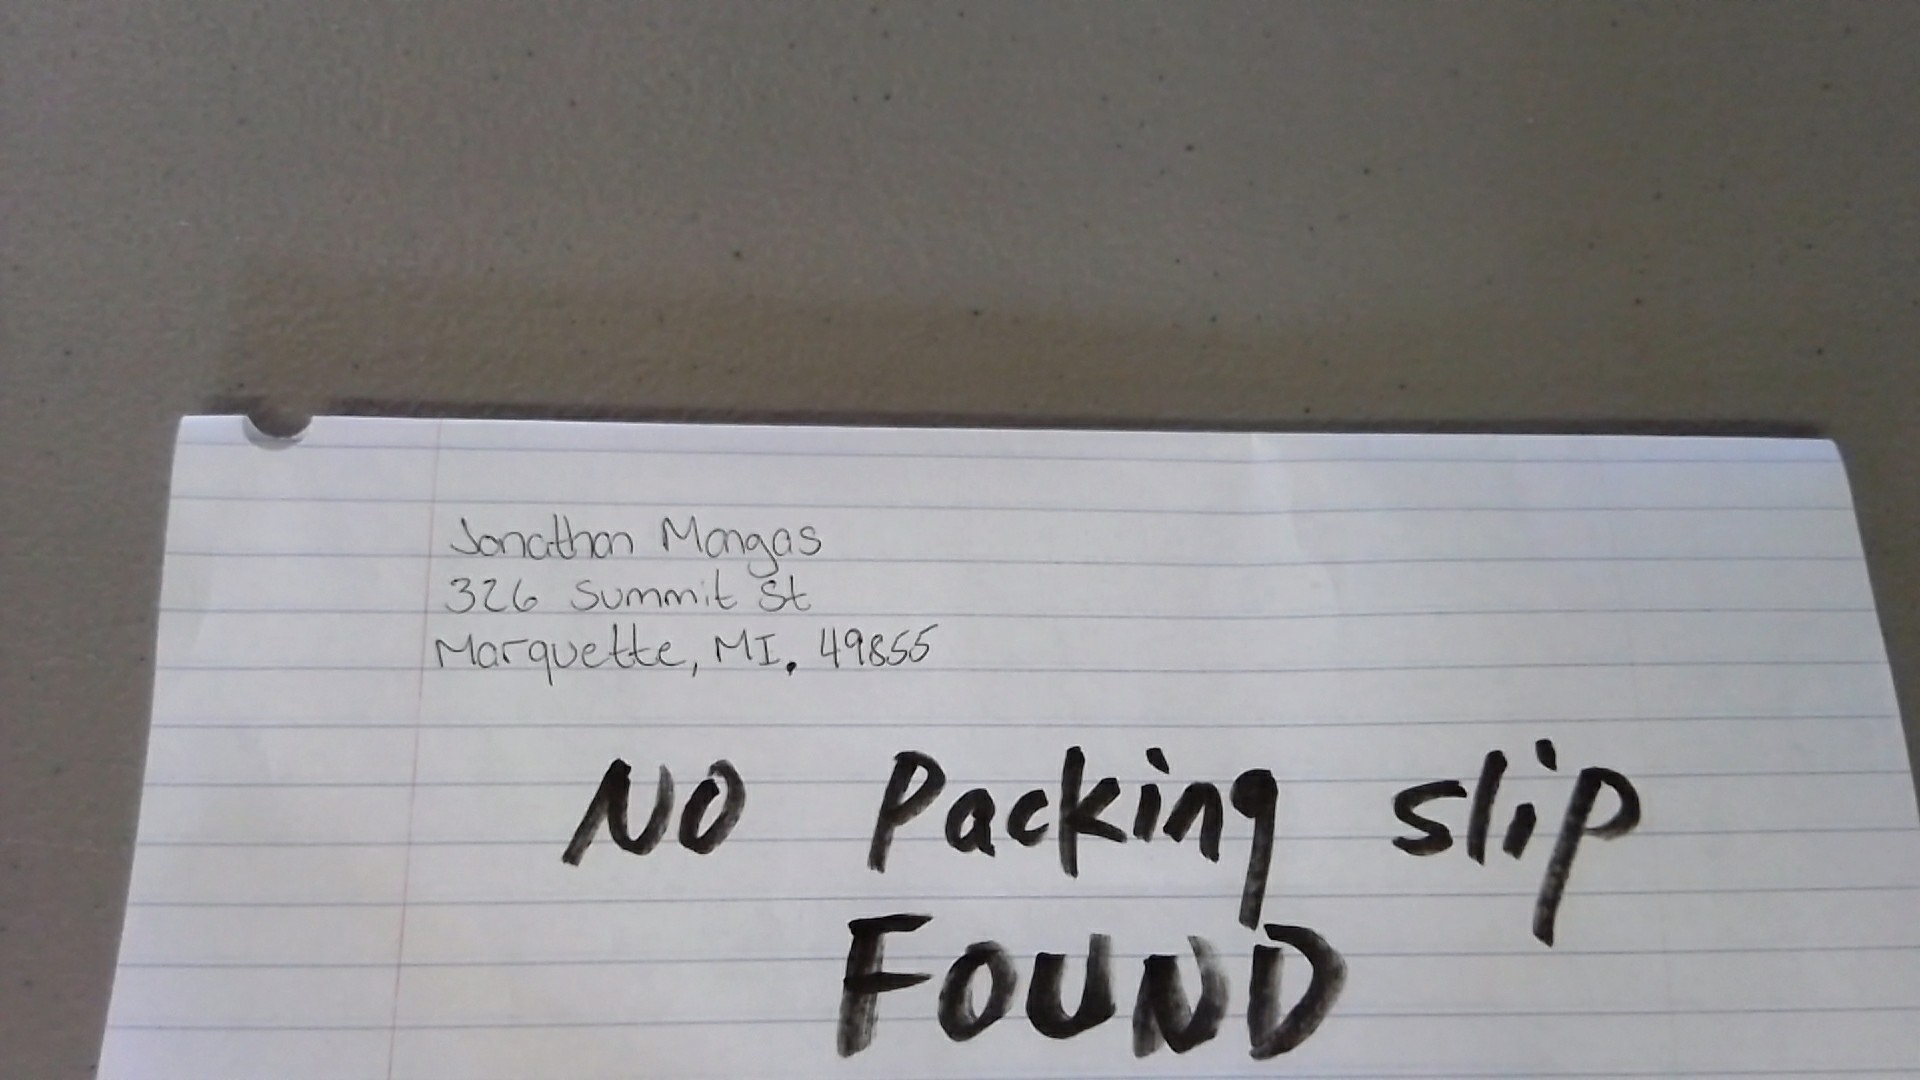 Jonathan Mangas
326 Summit St
Marquette, MI. 49855
NO Packing slip
FOUND